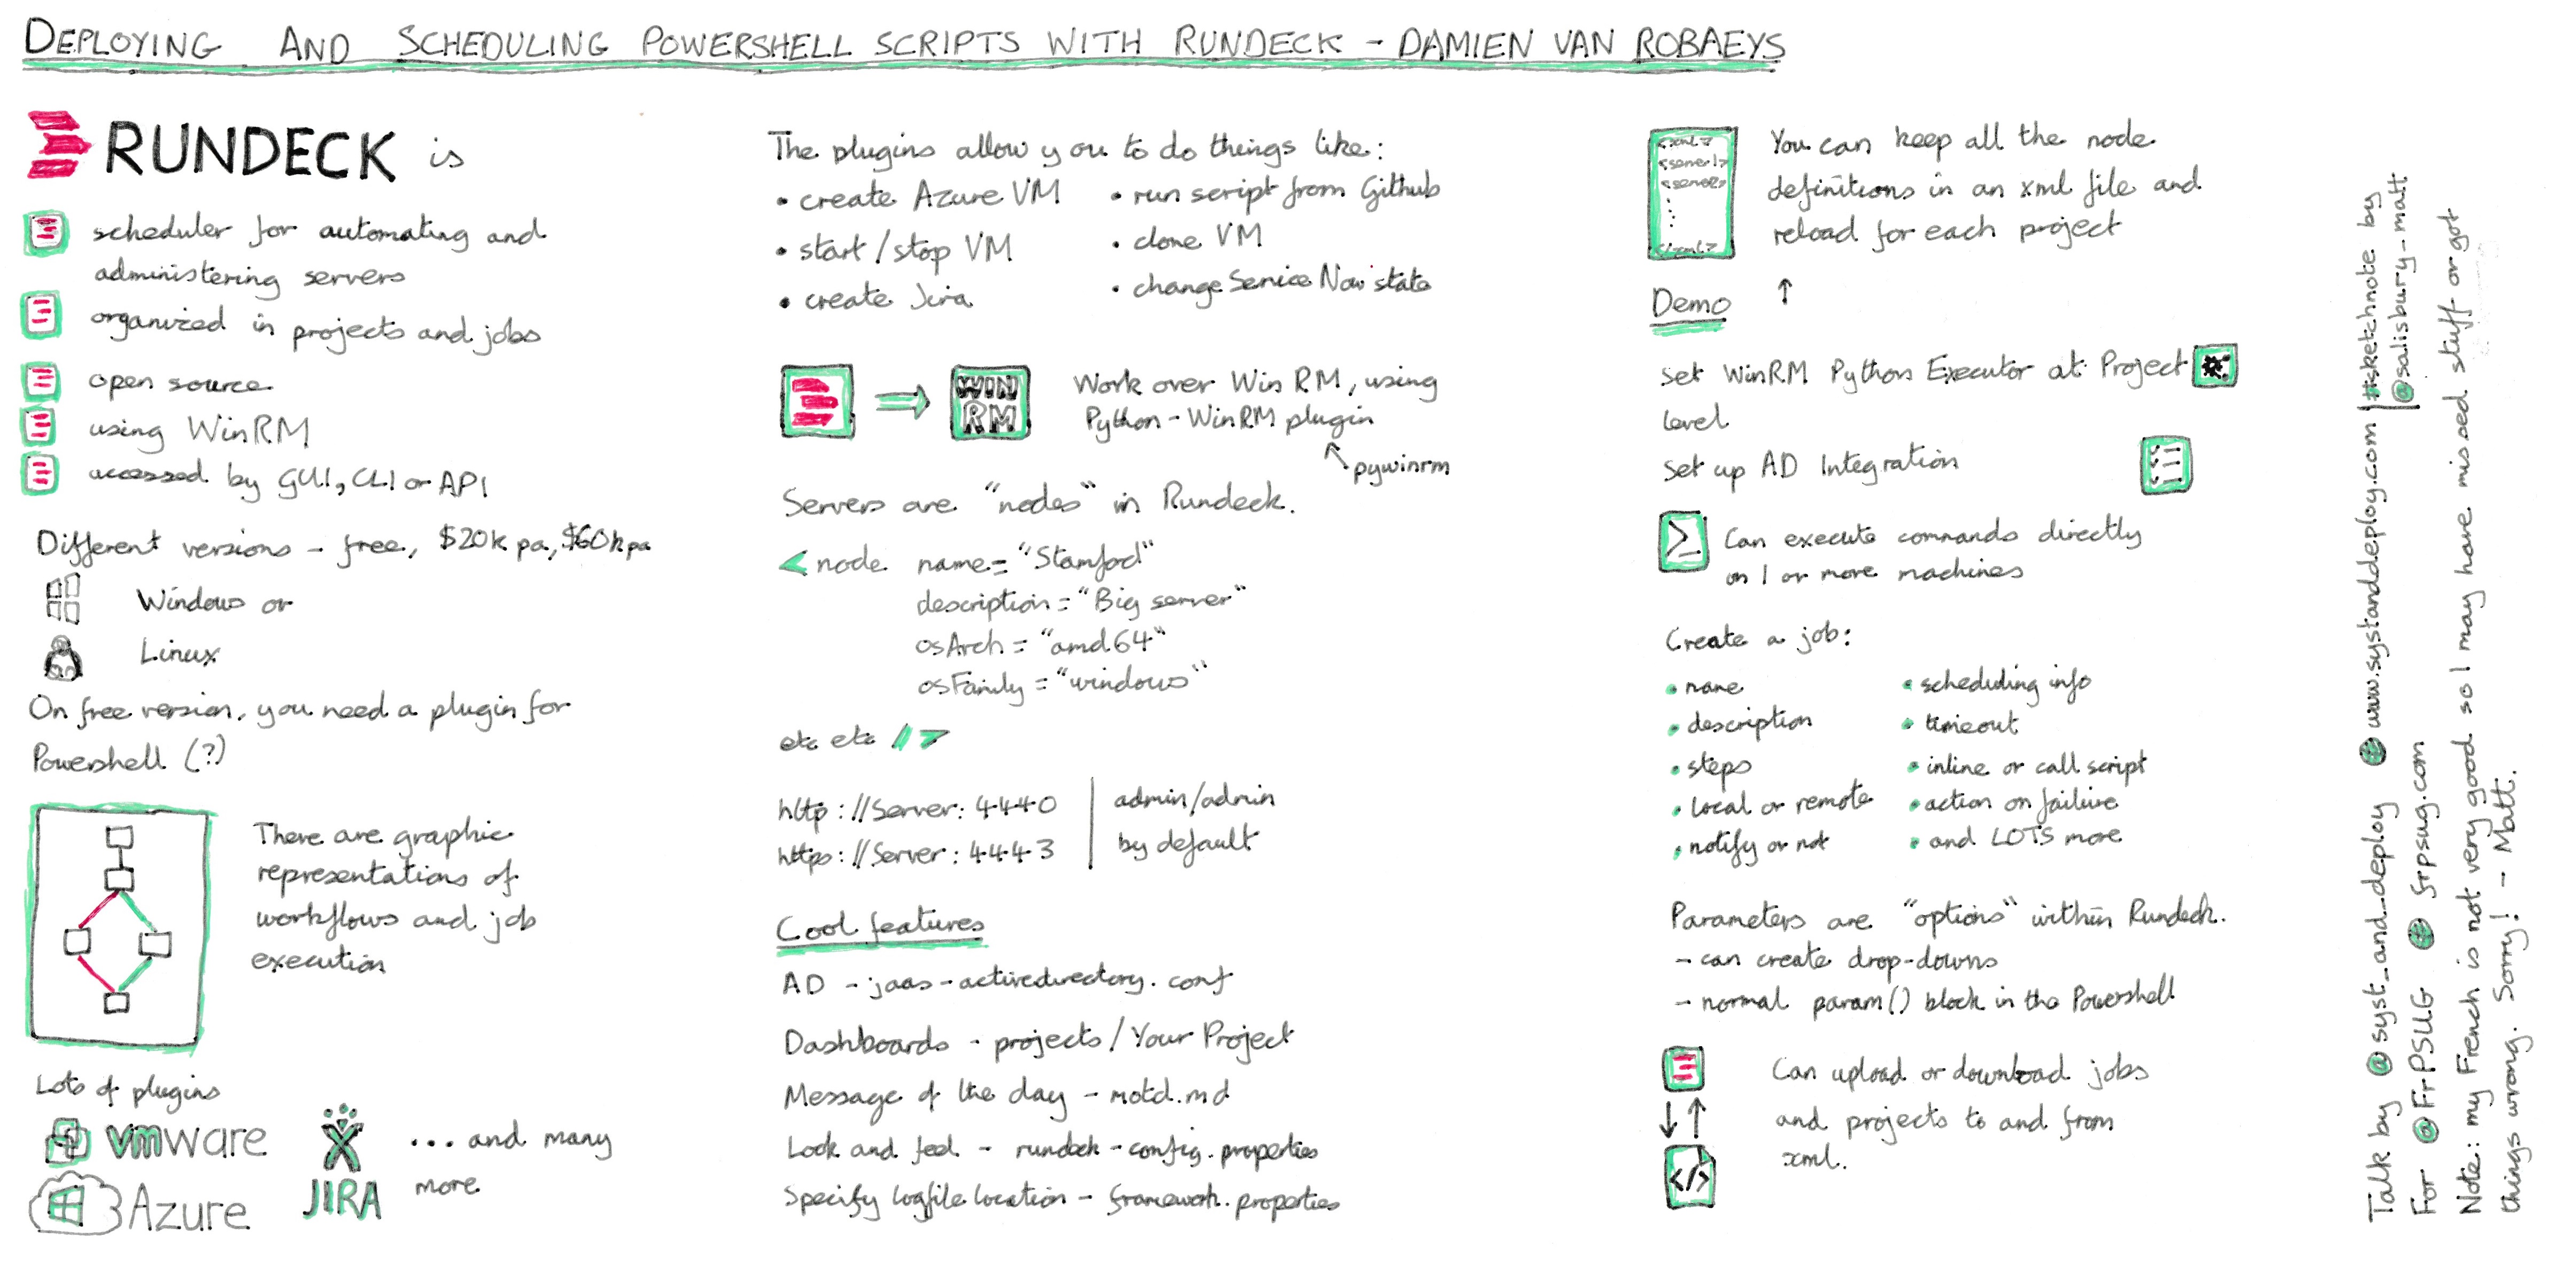 DEPLOYING AND SCHEDULING POWERSHELL SCRIPTS WITH RUNDECK - DAMIEN VAN ROBAEYS
RUNDECK is
scheduler for automating and
administering servers
organized in projects and jobs
open source
using WinRM
accessed by GUI, CLI or API
Different versions - free, $20k pa, $60k pa
Windows or
Linux
On free version, you need a plugin for
Powershell (?)
There are graphic
representations of
workflows and job
execution
Lots of plugins
vmware
Azure
JIRA
... and many
more
The plugins allow you to do things like:
• create Azure VM
• start / stop VM
• create Jira
• run script from Github
• clone VM
• change Service Now state
WIN
RM
Work over Win RM, using
Python - WinRM plugin
pywinrm
Servers are "nodes" in Rundeck.
< node name = "Stamford"
description = "Big server"
osArch = "amd64"
osFamily = "windows"
etc etc />
http://Server:4440
https://Server:4443
admin/admin
by default
Cool features
AD - jaas-activedirectory.conf
Dashboards - projects / Your Project
Message of the day - motd.md
Look and feel - rundeck-config.properties
Specify logfile location - framework.properties
<xml>
<server1>
<server2>
<xml>
You can keep all the node
definitions in an xml file and
reload for each project
↑
Demo
Set WinRM Python Executor at Project
level
Set up AD Integration
>_
Can execute commands directly
on 1 or more machines
Create a job:
• name
• description
• steps
• local or remote
• notify or not
• scheduling info
• timeout
• inline or call script
• action on failure
• and LOTS more
Parameters are "options" within Rundeck.
- can create drop-downs
- normal param() block in the Powershell
</>
Can upload or download jobs
and projects to and from
xml.
Talk by @syst_and_deploy www.systanddeploy.com
For @FrPSUG frpsug.com
#sketchnote by
@salisbury-matt
Note: my French is not very good so I may have missed stuff or got
things wrong. Sorry! - Matt.